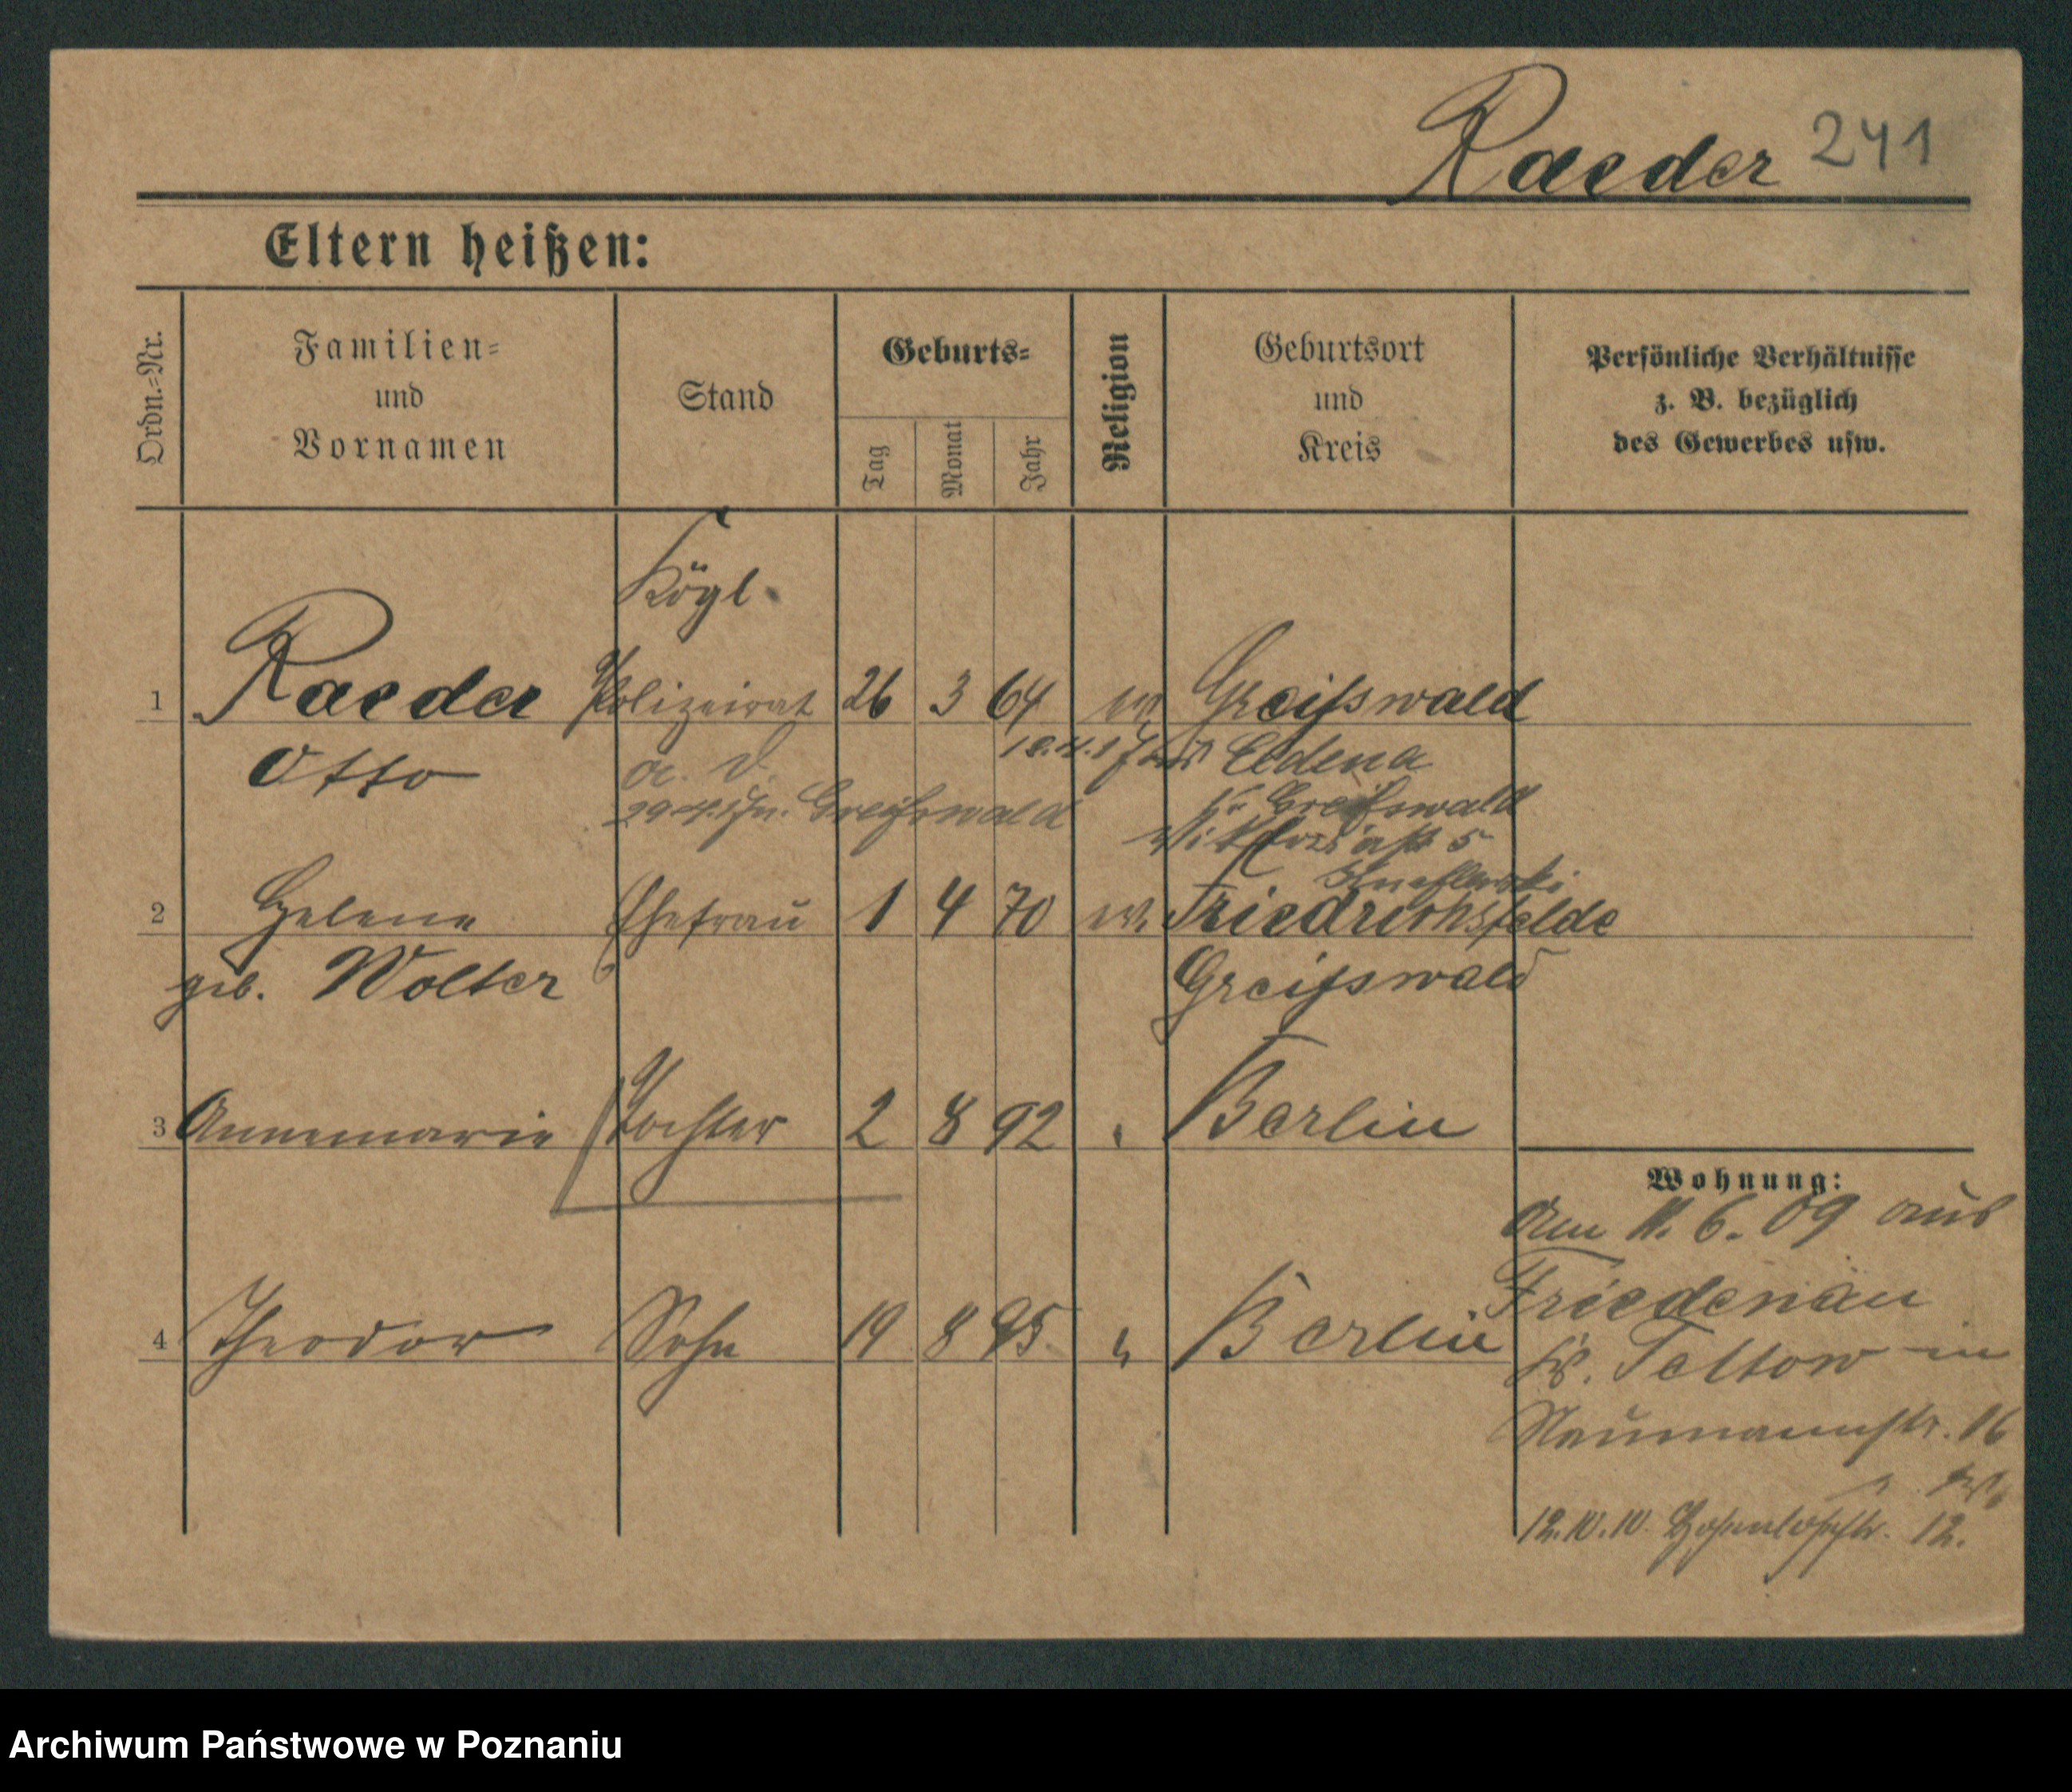 Raeder 241
Eltern heißen:
Ordn.=Nr.
Familien=
und
Vornamen
Stand
Geburts=
Tag
Monat
Jahr
Religion
Geburtsort
und
Kreis
Persönliche Verhältnisse
z. B. bezüglich
des Gewerbes usw.
Kögl.
1 Raeder Polizeirat 26 3 64 ev Greifswald
Otto a. D. Eldena
Greifswald
Kr. Greifswald
5
2 Helene Ehefrau 1 4 70 ev. Friedrichsfelde
geb. Wolter Greifswald
3 Annemarie Tochter 2 8 92 " Berlin
Wohnung:
Am 11. 6. 09 aus
Friedenau
4 Theodor Sohn 19 8 95 " Berlin
Kr. Teltow in
Naumannstr. 16
12.10.10. Hohenlohestr. 12.
Archiwum Państwowe w Poznaniu